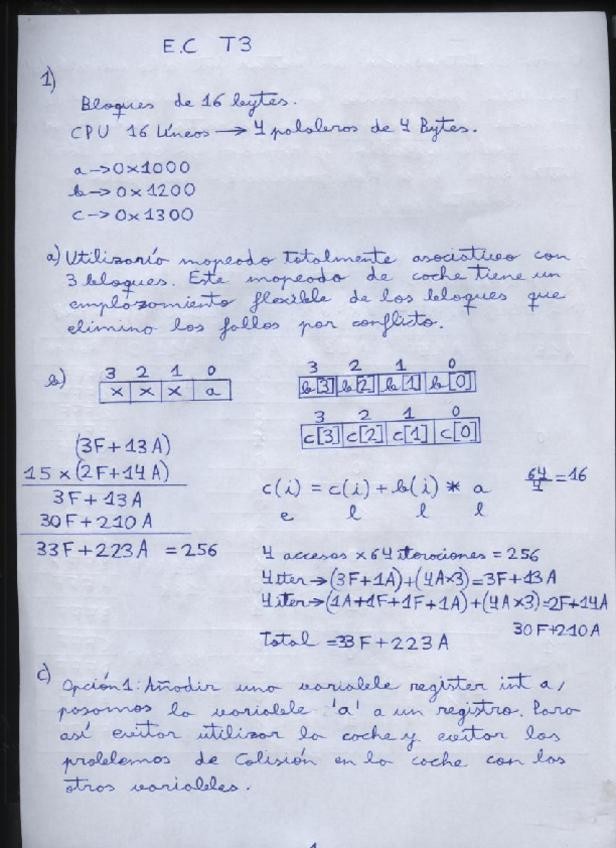 E.C T3
1)
Bloques de 16 bytes.
CPU 16 Líneas → 4 palabras de 4 Bytes.
a → 0x1000
b → 0x1200
c → 0x1300
a) Utilizaría mapeado totalmente asociativo con
3 bloques. Este mapeado de cache tiene un
emplazamiento flexible de los bloques que
elimina los fallos por conflicto.
b)
3 2 1 0
x x x a
3 2 1 0
b[3] b[2] b[1] b[0]
3 2 1 0
c[3] c[2] c[1] c[0]
(3F+13A)
15 x (2F+14A)
3F+13A
30F+210A
33F+223A = 256
c(i) = c(i) + b(i) * a
e l l l
64/4 = 16
4 accesos x 64 iteraciones = 256
4 iter → (3F+1A)+(4Ax3)=3F+13A
4 iter → (1A+1F+1F+1A)+(4Ax3)=2F+14A
30F+210A
Total = 33F+223A
c) Opción 1: Añadir una variable register int a,
pasamos la variable 'a' a un registro. Para
así evitar utilizar la cache y evitar los
problemas de Colisión en la cache con las
otras variables.
1